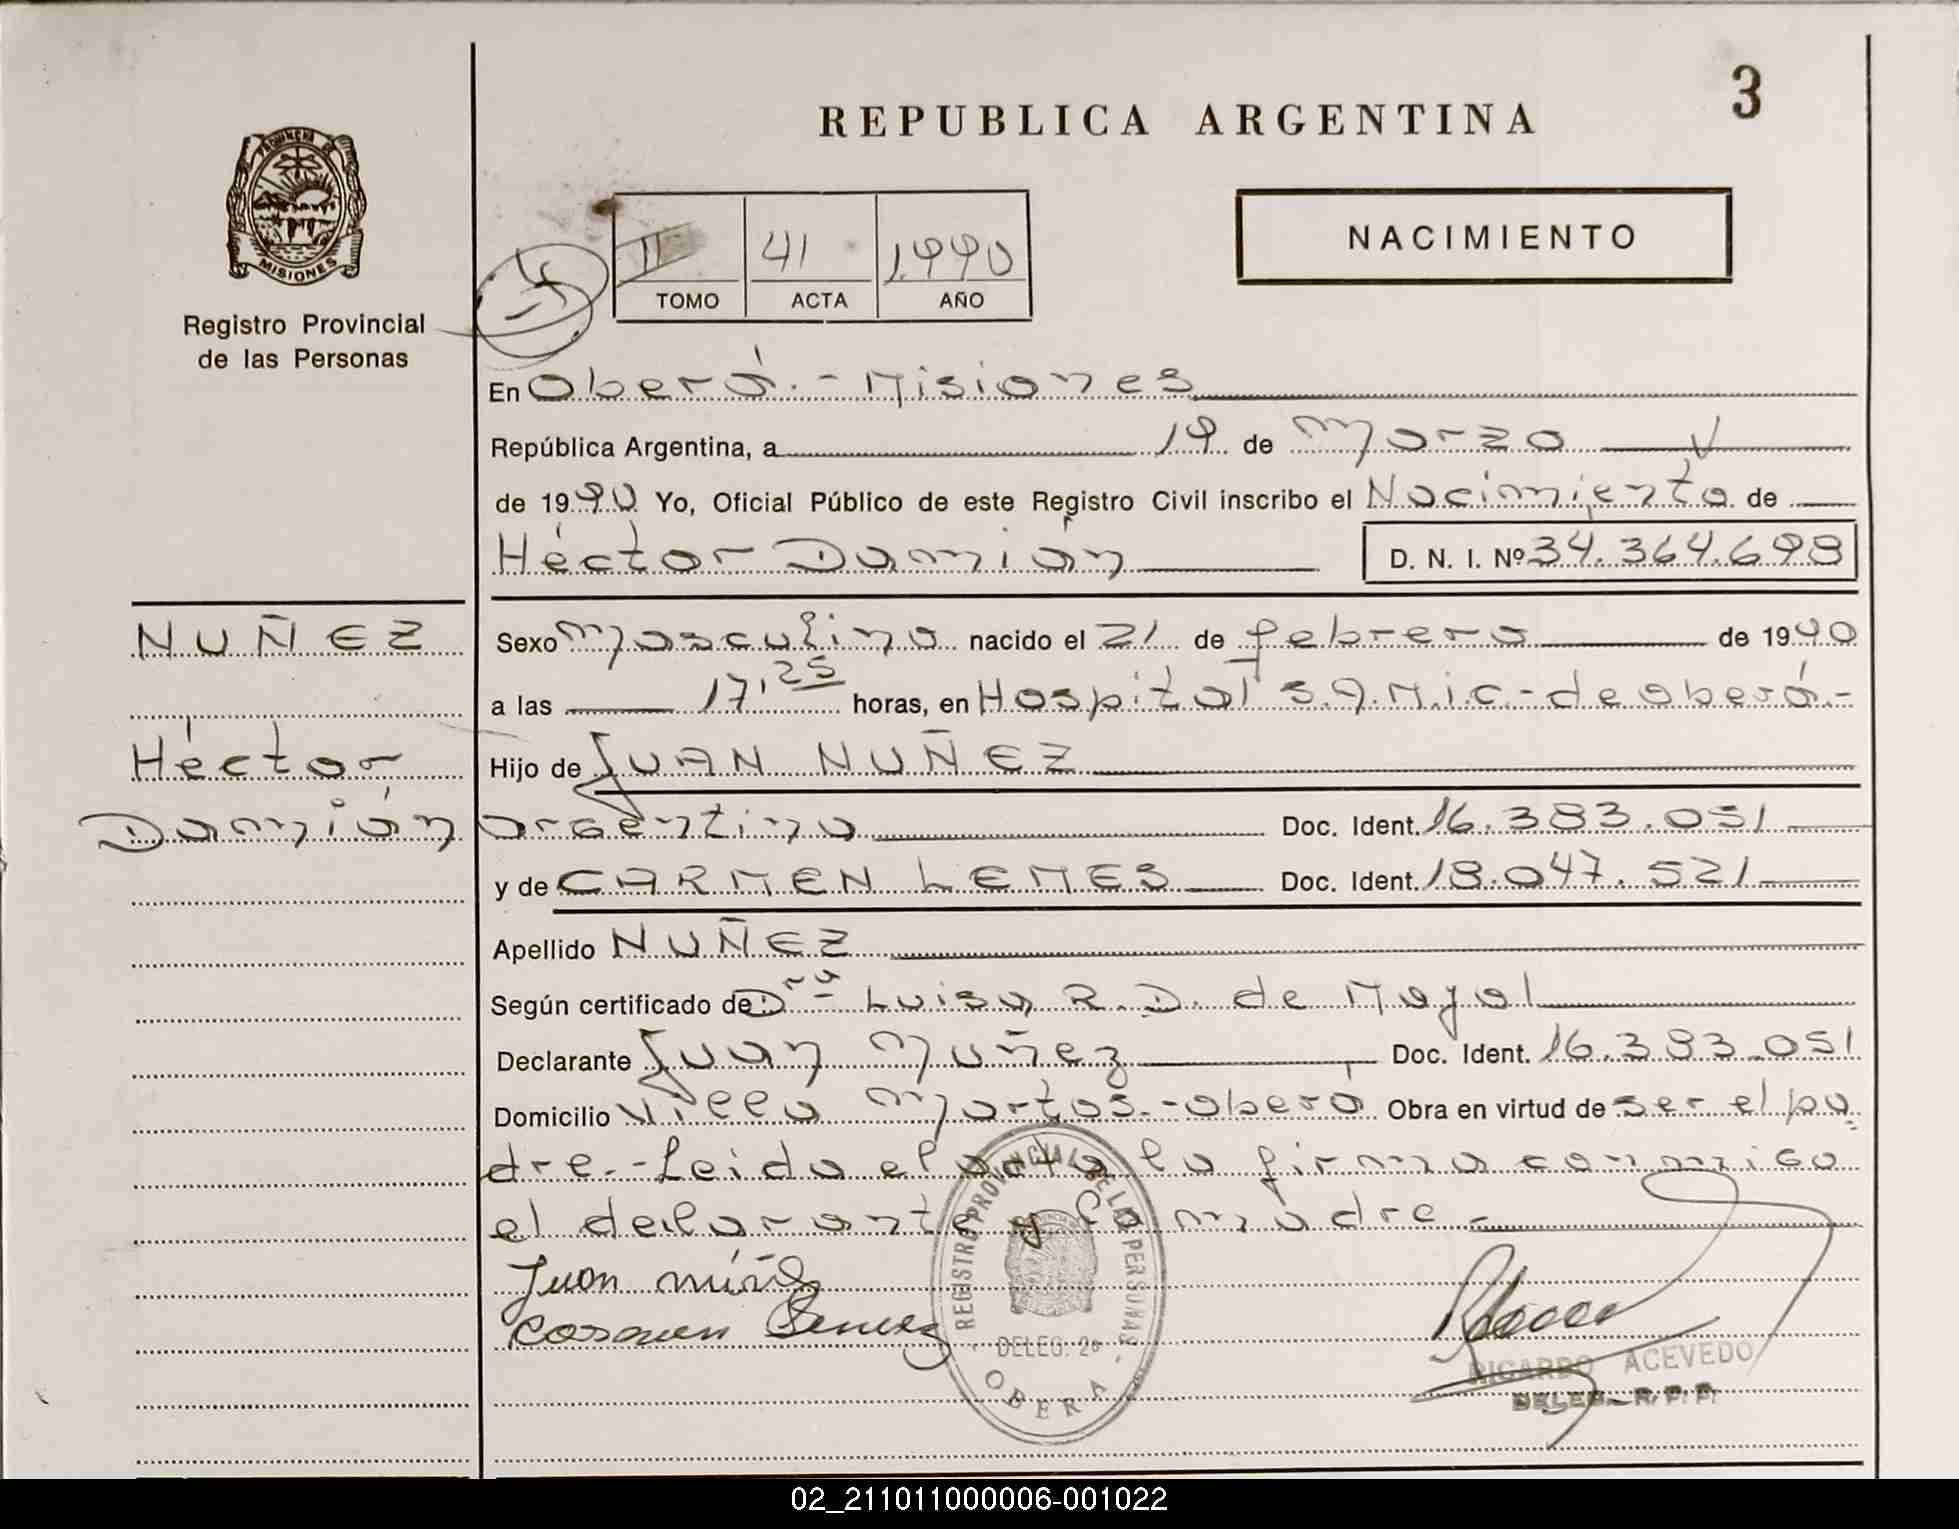 3
REPUBLICA ARGENTINA
PROVINCIA DE
MISIONES
Registro Provincial
de las Personas
II 41 1.990
TOMO ACTA AÑO
NACIMIENTO
En Oberá.- Misiones
República Argentina, a 19 de Marzo
de 1990 Yo, Oficial Público de este Registro Civil inscribo el Nacimiento de
Héctor Damián D. N. I. Nº 34.364.698
NUÑEZ
Héctor
Damián
Sexo Masculino nacido el 21 de febrero de 1990
a las 17,25 horas, en Hospital S.A.M.i.c.- de oberá.-
Hijo de JUAN NUÑEZ
argentino Doc. Ident. 16.383.051
y de CARMEN LEMES Doc. Ident. 18.047.521
Apellido NUÑEZ
Según certificado de Dra- Luisa R. D. de Mayol
Declarante Juan Nuñez Doc. Ident. 16.383.051
Domicilio Villa Martos.-oberá Obra en virtud de ser el pa-
dre.-Leida el acta la firma conmigo
el declarante y la madre.-
Juan
REGISTRO PROVINCIAL DE LAS PERSONAS
DELEG. 2ª
OBERA
RICARDO ACEVEDO
DELEG. R. P. P.
02_211011000006-001022